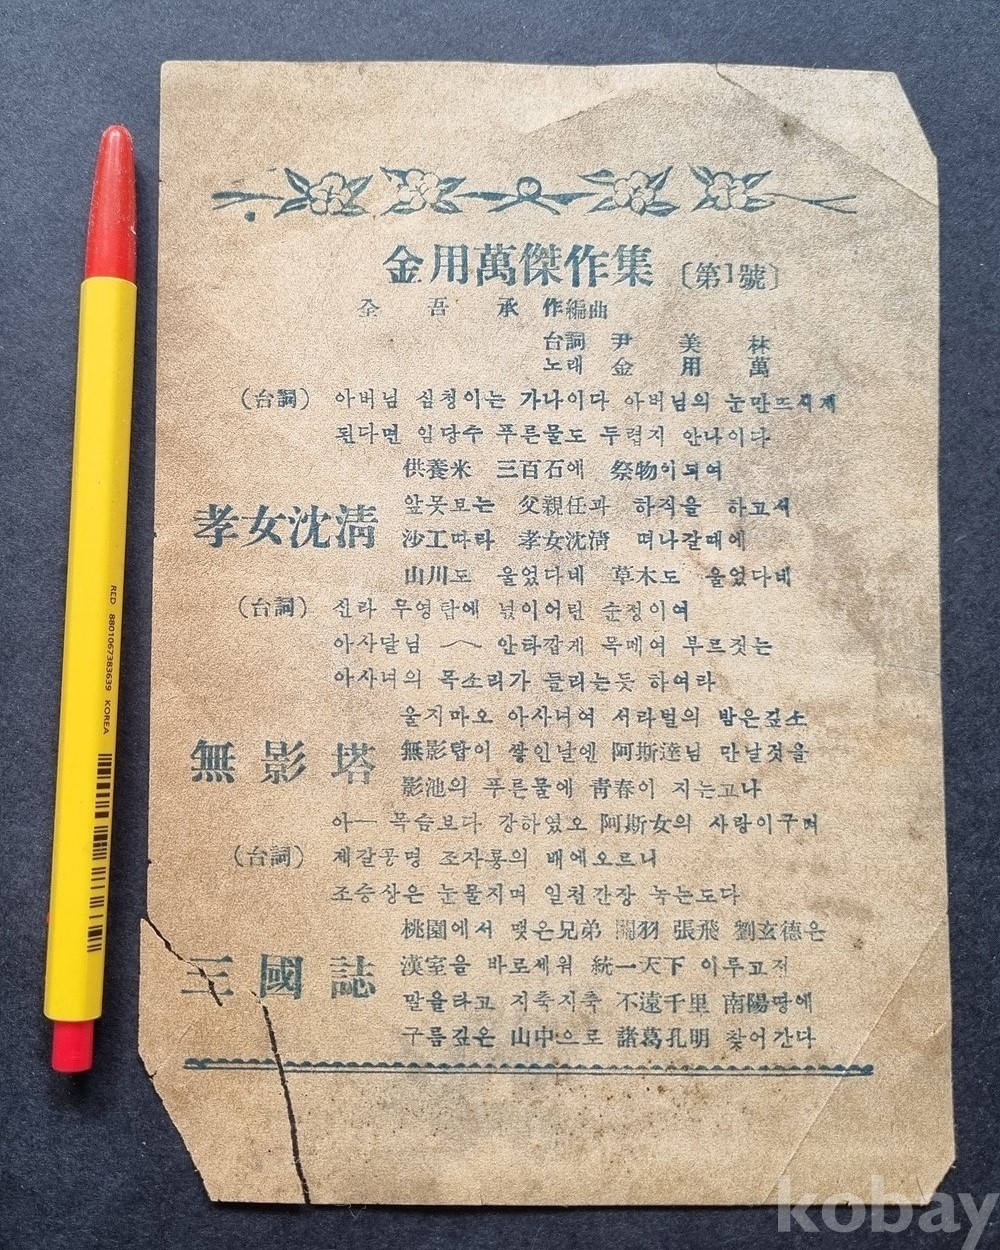 金用萬傑作集 〔第1號〕
全吾承 作編曲
台詞 尹美林
노래 金用萬
(台詞) 아버님 심청이는 가나이다 아버님의 눈만뜨시게
된다면 임당수 푸른물도 두렵지 안나이다
孝女沈淸
供養米 三百石에 祭物이되여
앞못보는 父親任과 하직을 하고서
沙工따라 孝女沈淸 떠나갈때에
山川도 울었다네 草木도 울었다네
(台詞) 신라 무영탑에 넋이어린 순정이여
아사달님 〜 안타깝게 목메여 부르짓는
아사녀의 목소리가 들리는듯 하여라
無影塔
울지마오 아사녀여 서라벌의 밤은깊소
無影탑이 쌓인날엔 阿斯達님 만날것을
影池의 푸른물에 靑春이 지는고나
아— 목숨보다 강하였오 阿斯女의 사랑이구려
(台詞) 제갈공명 조자룡의 배에오르니
조승상은 눈물지며 일천간장 녹는도다
三國誌
桃園에서 맺은兄弟 關羽 張飛 劉玄德은
漢室을 바로세워 統一天下 이루고저
말을타고 지축지축 不遠千里 南陽땅에
구름깊은 山中으로 諸葛孔明 찾어간다
RED 8801067383639 KOREA
kobay